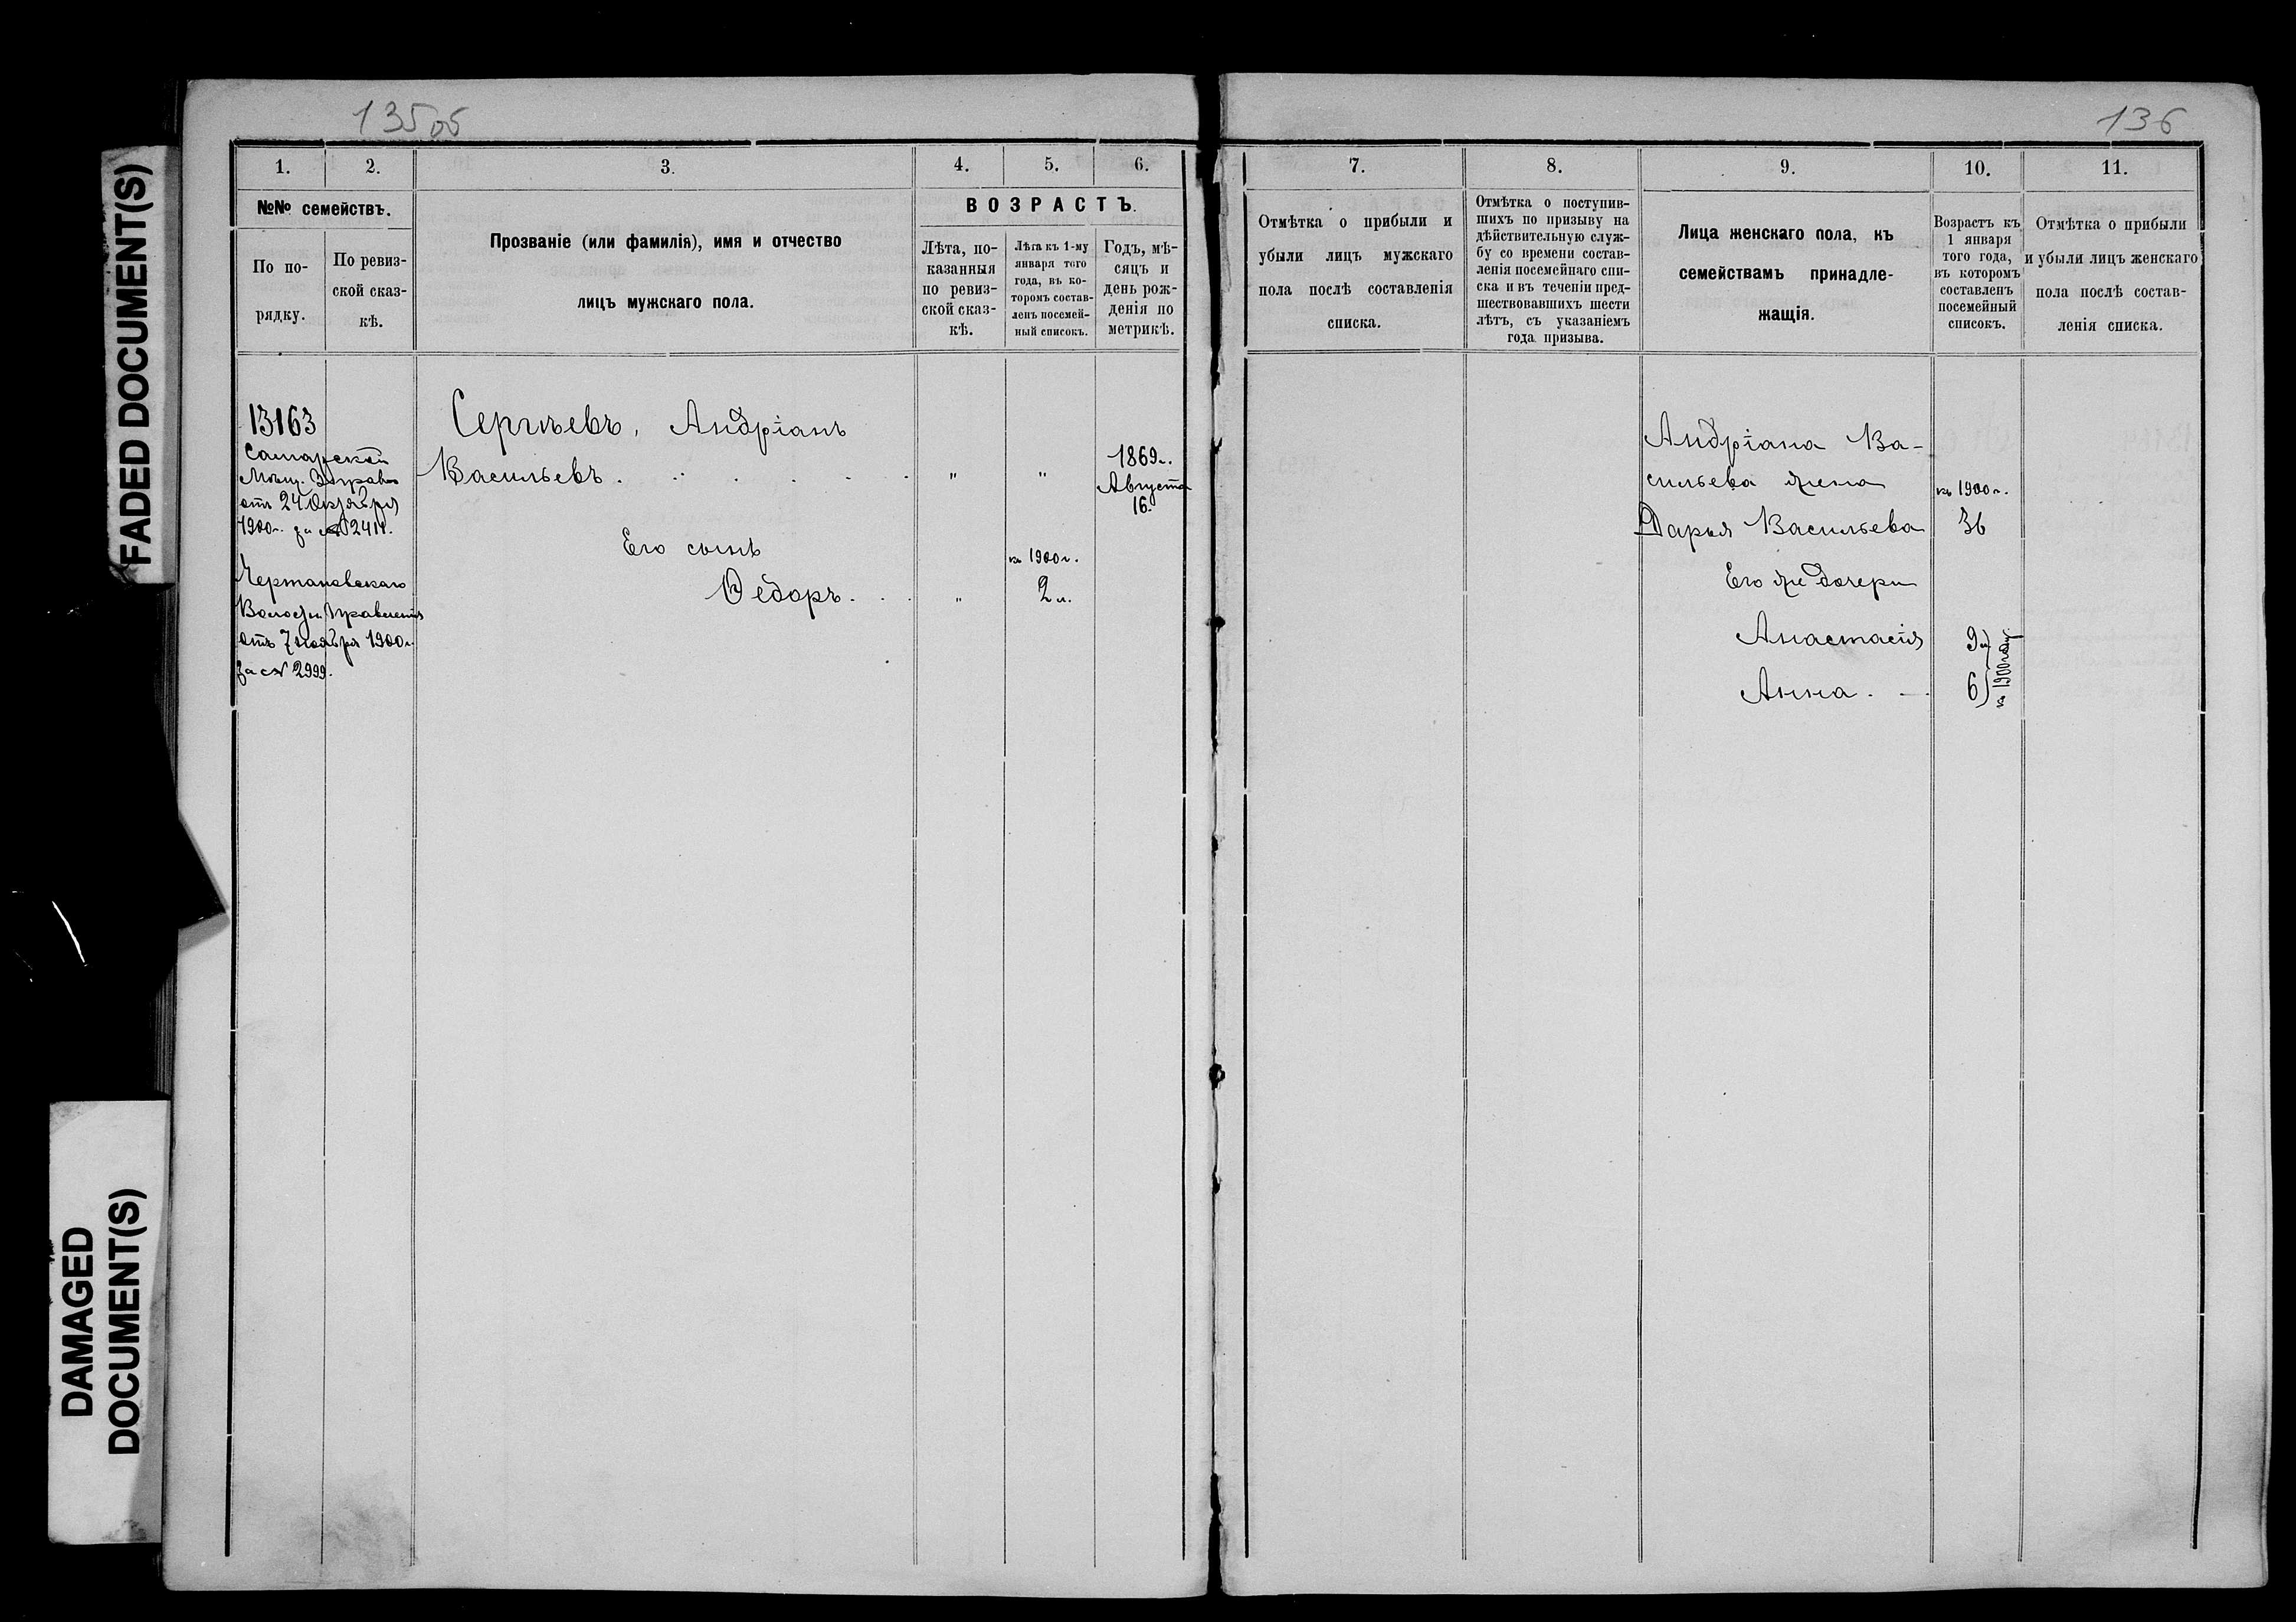 FADED DOCUMENT(S)
DAMAGED
DOCUMENT(S)
135 об
1.
2.
3.
4.
5.
6.
№№ семействъ.
По по-
рядку.
По ревиз-
ской сказ-
кѣ.
Прозваніе (или фамилія), имя и отчество
лицъ мужскаго пола.
ВОЗРАСТЪ.
Лѣта, по-
казанныя
по ревиз-
ской сказ-
кѣ.
Лѣта къ 1-му
января того
года, въ ко-
торомъ состав-
ленъ посемей-
ный списокъ.
Годъ, мѣ-
сяцъ и
день рож-
денія по
метрикѣ.
13163
Самарской
Мѣщ. Управы
отъ 24 Октября
1900 г. за № 2411.
Чертановскаго
Волостн. Правленія
отъ 7 ноября 1900 г.
за № 2999.
Сергѣевъ, Андріанъ
Васильевъ . . . . . . " "
1869 г.
Августа
16.
Его сынъ
къ 1900 г.
Ѳедоръ . . . " 2 л.
136
7.
8.
9.
10.
11.
Отмѣтка о прибыли и
убыли лицъ мужскаго
пола послѣ составленія
списка.
Отмѣтка о поступив-
шихъ по призыву на
дѣйствительную служ-
бу со времени состав-
ленія посемейнаго спи-
ска и въ теченіи пред-
шествовавшихъ шести
лѣтъ, съ указаніемъ
года призыва.
Лица женскаго пола, къ
семействамъ принадле-
жащія.
Возрастъ къ
1 января
того года,
въ которомъ
составленъ
посемейный
списокъ.
Отмѣтка о прибыли
и убыли лицъ женскаго
пола послѣ состав-
ленія списка.
Андріана Ва-
сильева жена
къ 1900 г.
Дарья Васильева 36
Его же дочери
Анастасія 9
Анна . — 6
къ 1900 году